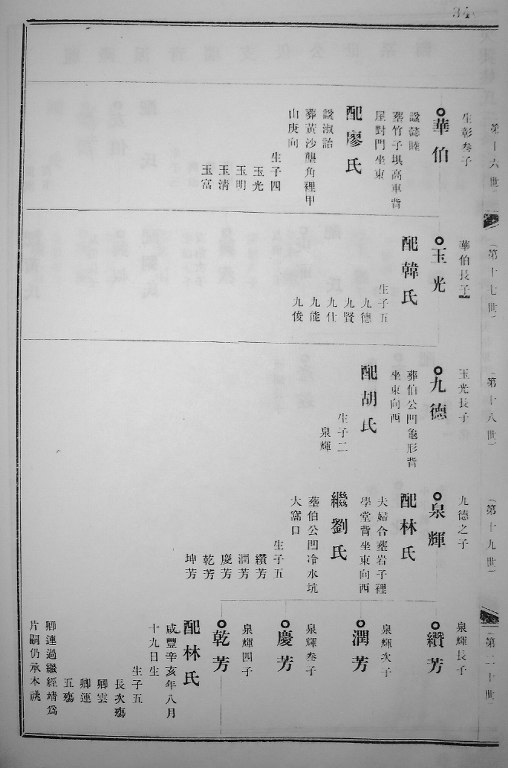 第十六世
生彰叁子
華伯
諡懿睦
墓竹子垻高車背
屋對門坐東
配廖氏
諡淑詒
葬黃沙壟角裡甲
山庚向
生子四
玉光
玉明
玉清
玉富
第十七世
華伯長子
玉光
配韓氏
生子五
九德
九賢
九仕
九能
九俊
第十八世
玉光長子
九德
葬伯公凹龜形背
坐東向西
配胡氏
生子二
泉輝
第十九世
九德之子
泉輝
配林氏
夫婦合墓岩子裡
學堂背坐東向西
繼劉氏
墓伯公凹冷水坑
大窩口
生子五
纘芳
潤芳
慶芳
乾芳
坤芳
第二十世
泉輝長子
纘芳
泉輝次子
潤芳
泉輝叁子
慶芳
泉輝四子
乾芳
咸豐辛亥年八月
十九日生
配林氏
生子五
長次殤
卿雲
卿連
五殤
卿連過繼經靖爲
片嗣仍承本祧